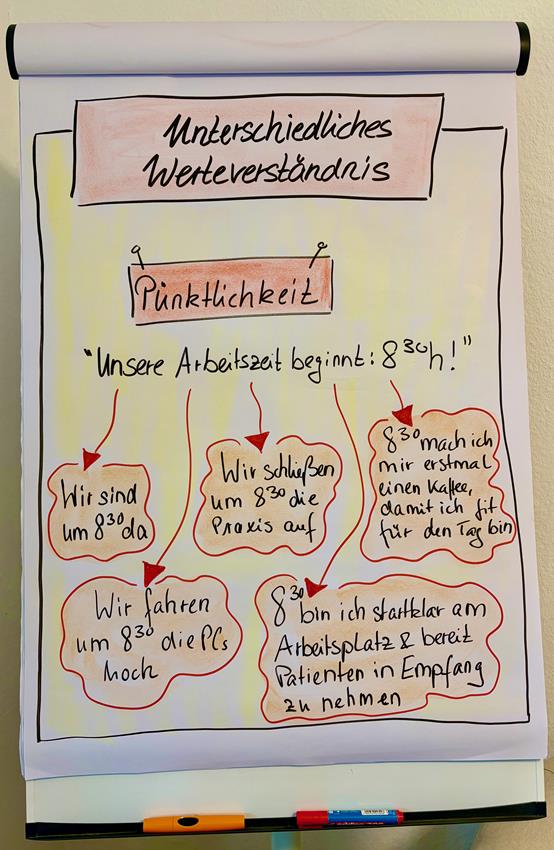 Unterschiedliches
Werteverständnis
Pünktlichkeit
"Unsere Arbeitszeit beginnt: 8³⁰h!"
Wir sind
um 8³⁰ da
Wir schließen
um 8³⁰ die
Praxis auf
8³⁰ mach ich
mir erstmal
einen Kaffee,
damit ich fit
für den Tag bin
Wir fahren
um 8³⁰ die PCs
hoch
8³⁰ bin ich startklar am
Arbeitsplatz & bereit
Patienten in Empfang
zu nehmen